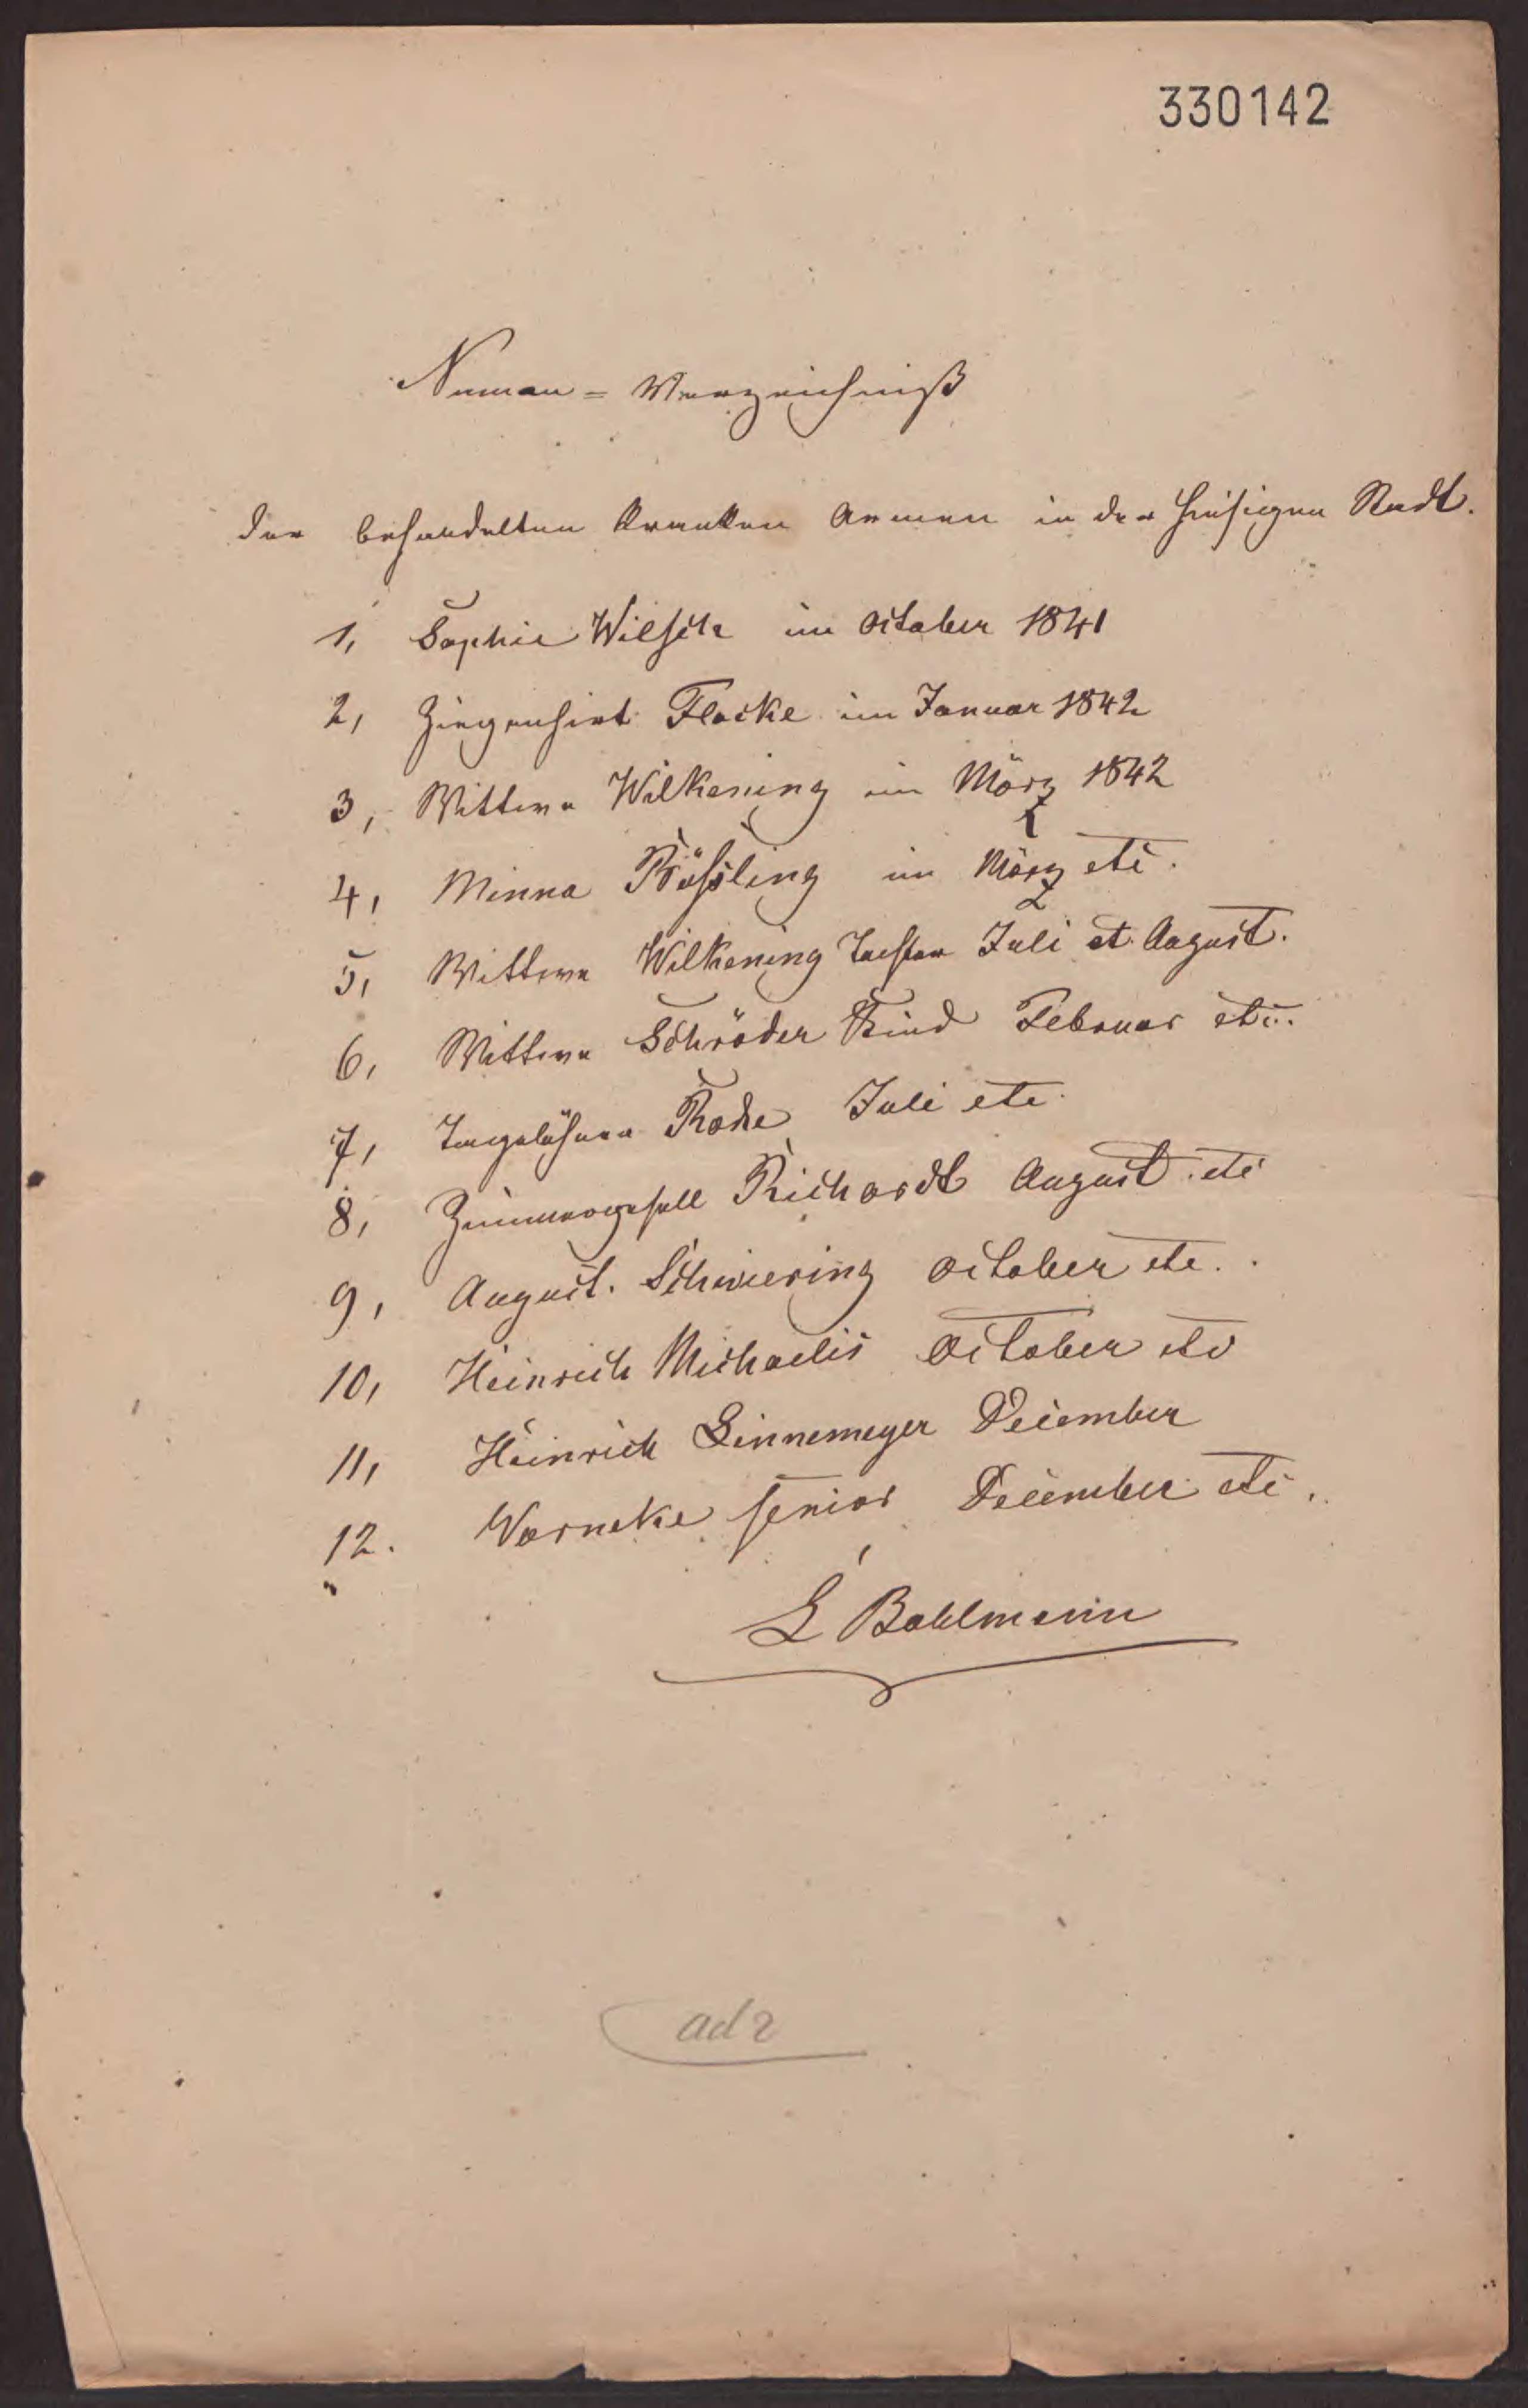 330142
Namen = Verzeichniß
der behandelten kranken Armen in der hiesigen Stadt.
1, Sophie Wilsch im October 1841
2, Ziegenhirt Flocke im Januar 1842
3, Wittwe Wilkening im März 1842
4, Minna Rößling im März etc.
5, Wittwe Wilkening Tochter Juli et August.
6, Wittwe Schröder Kind Februar etc.
7, Tagelöhner Rode Juli etc.
8, Zimmergesell Richardt August etc
9, August. Schwiering October etc.
10, Heinrich Michaelis October etc
11, Heinrich Linnemeyer December
12. Warneke senior December etc.
L Bahlmann
ad 2